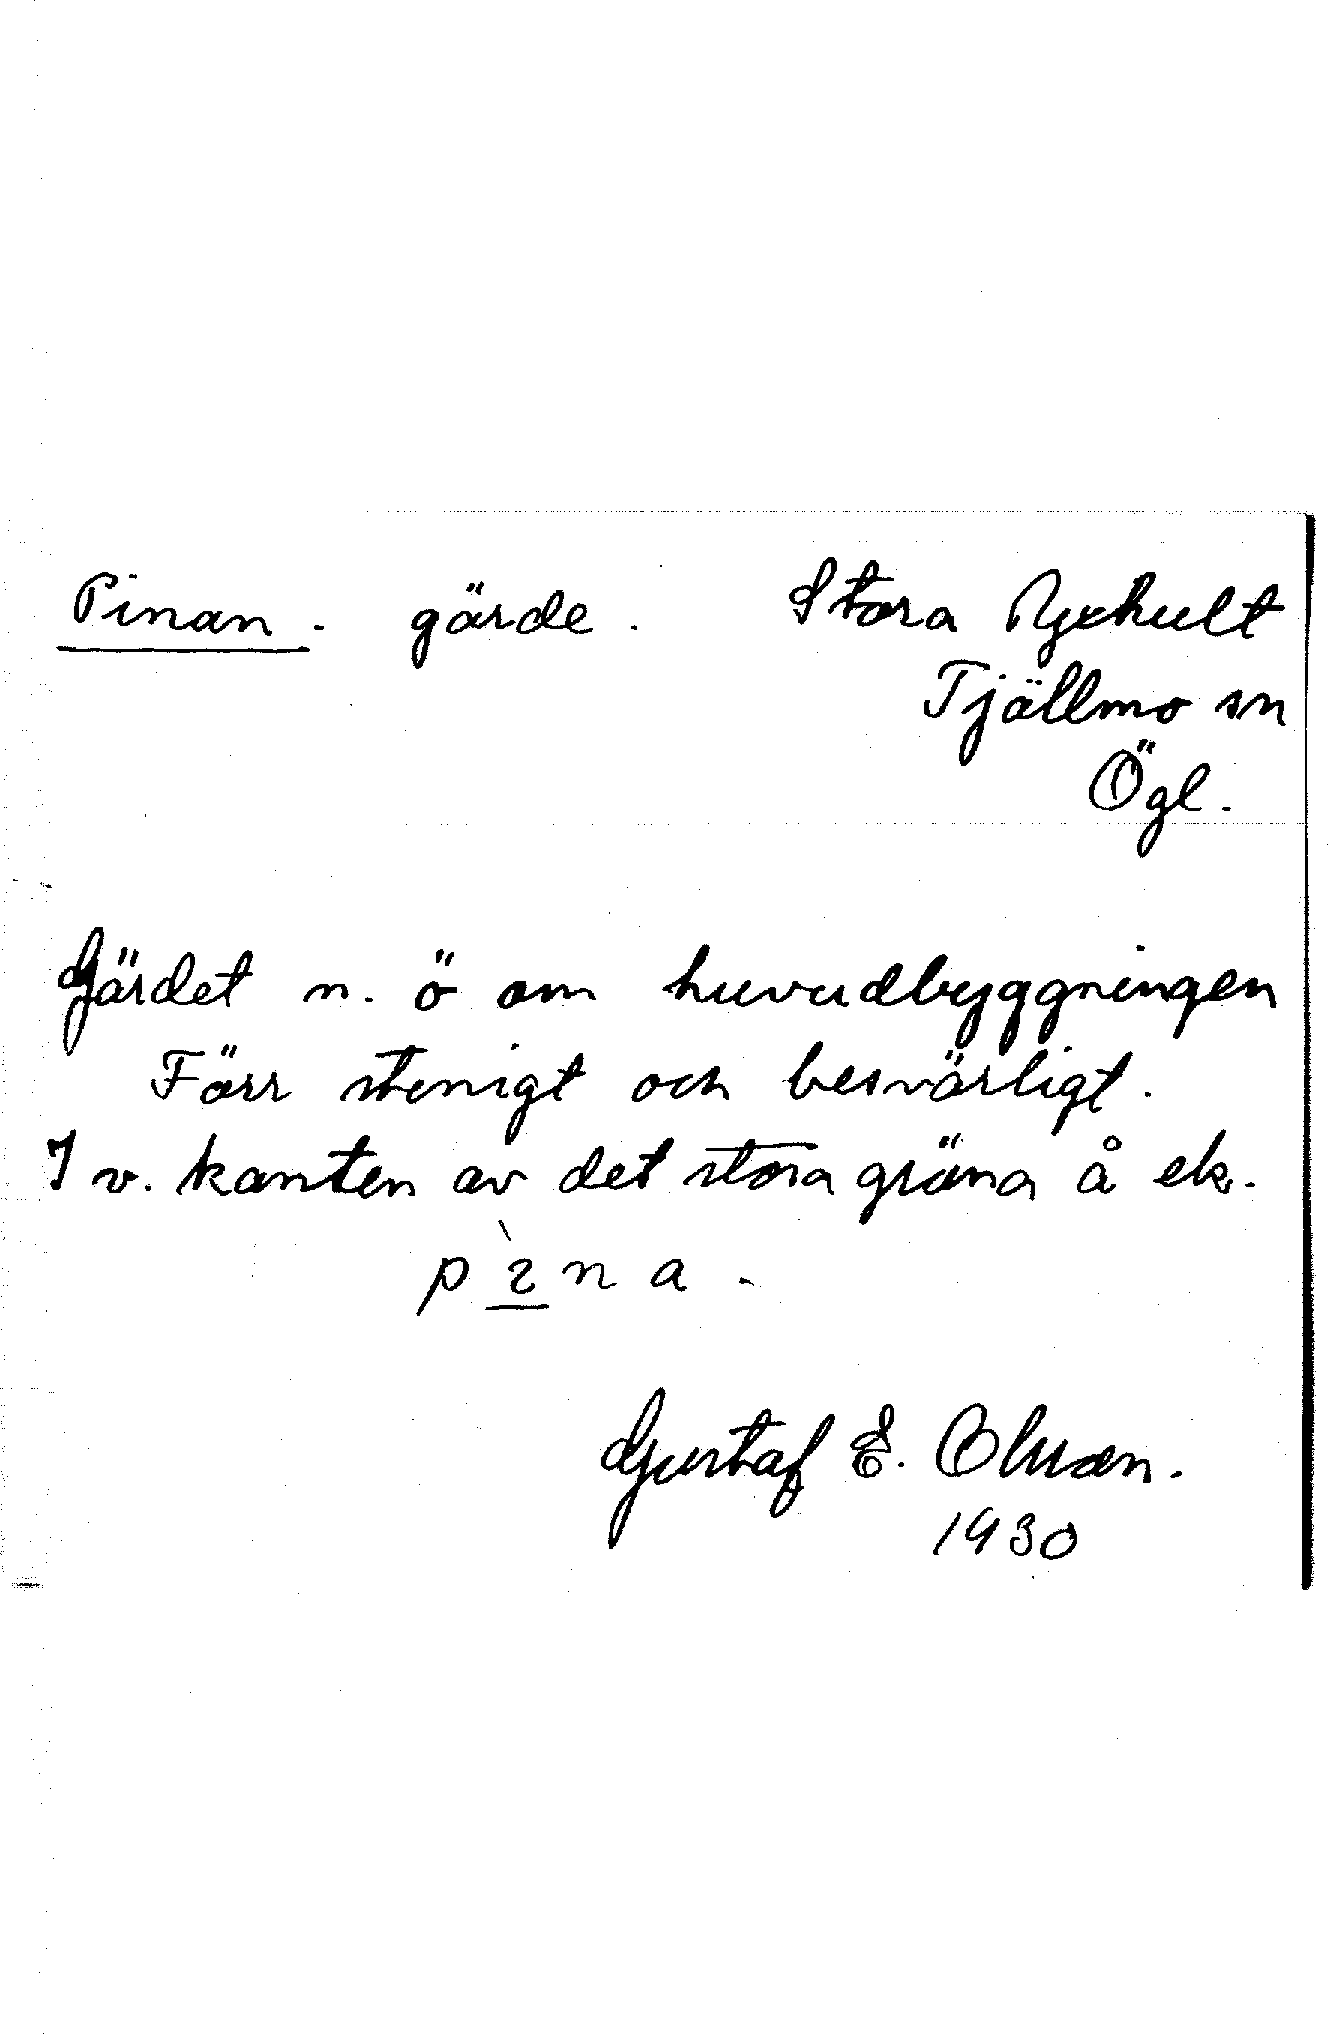 Pinan. gärde. Stora Yxhult
Tjällmo sn
Ögl.
Gärdet n. ö om huvudbyggningen
Förr stenigt och besvärligt.
I v. kanten av det stora gröna å ek.
pìna.
Gustaf E. Olsson.
1930